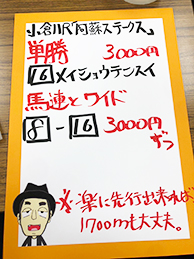 小倉11R「阿蘇ステークス」
単勝 3000円
16 メイショウテンスイ
馬連とワイド
8-16 3000円
ずつ
※楽に先行出来れば
1700mも大丈夫。